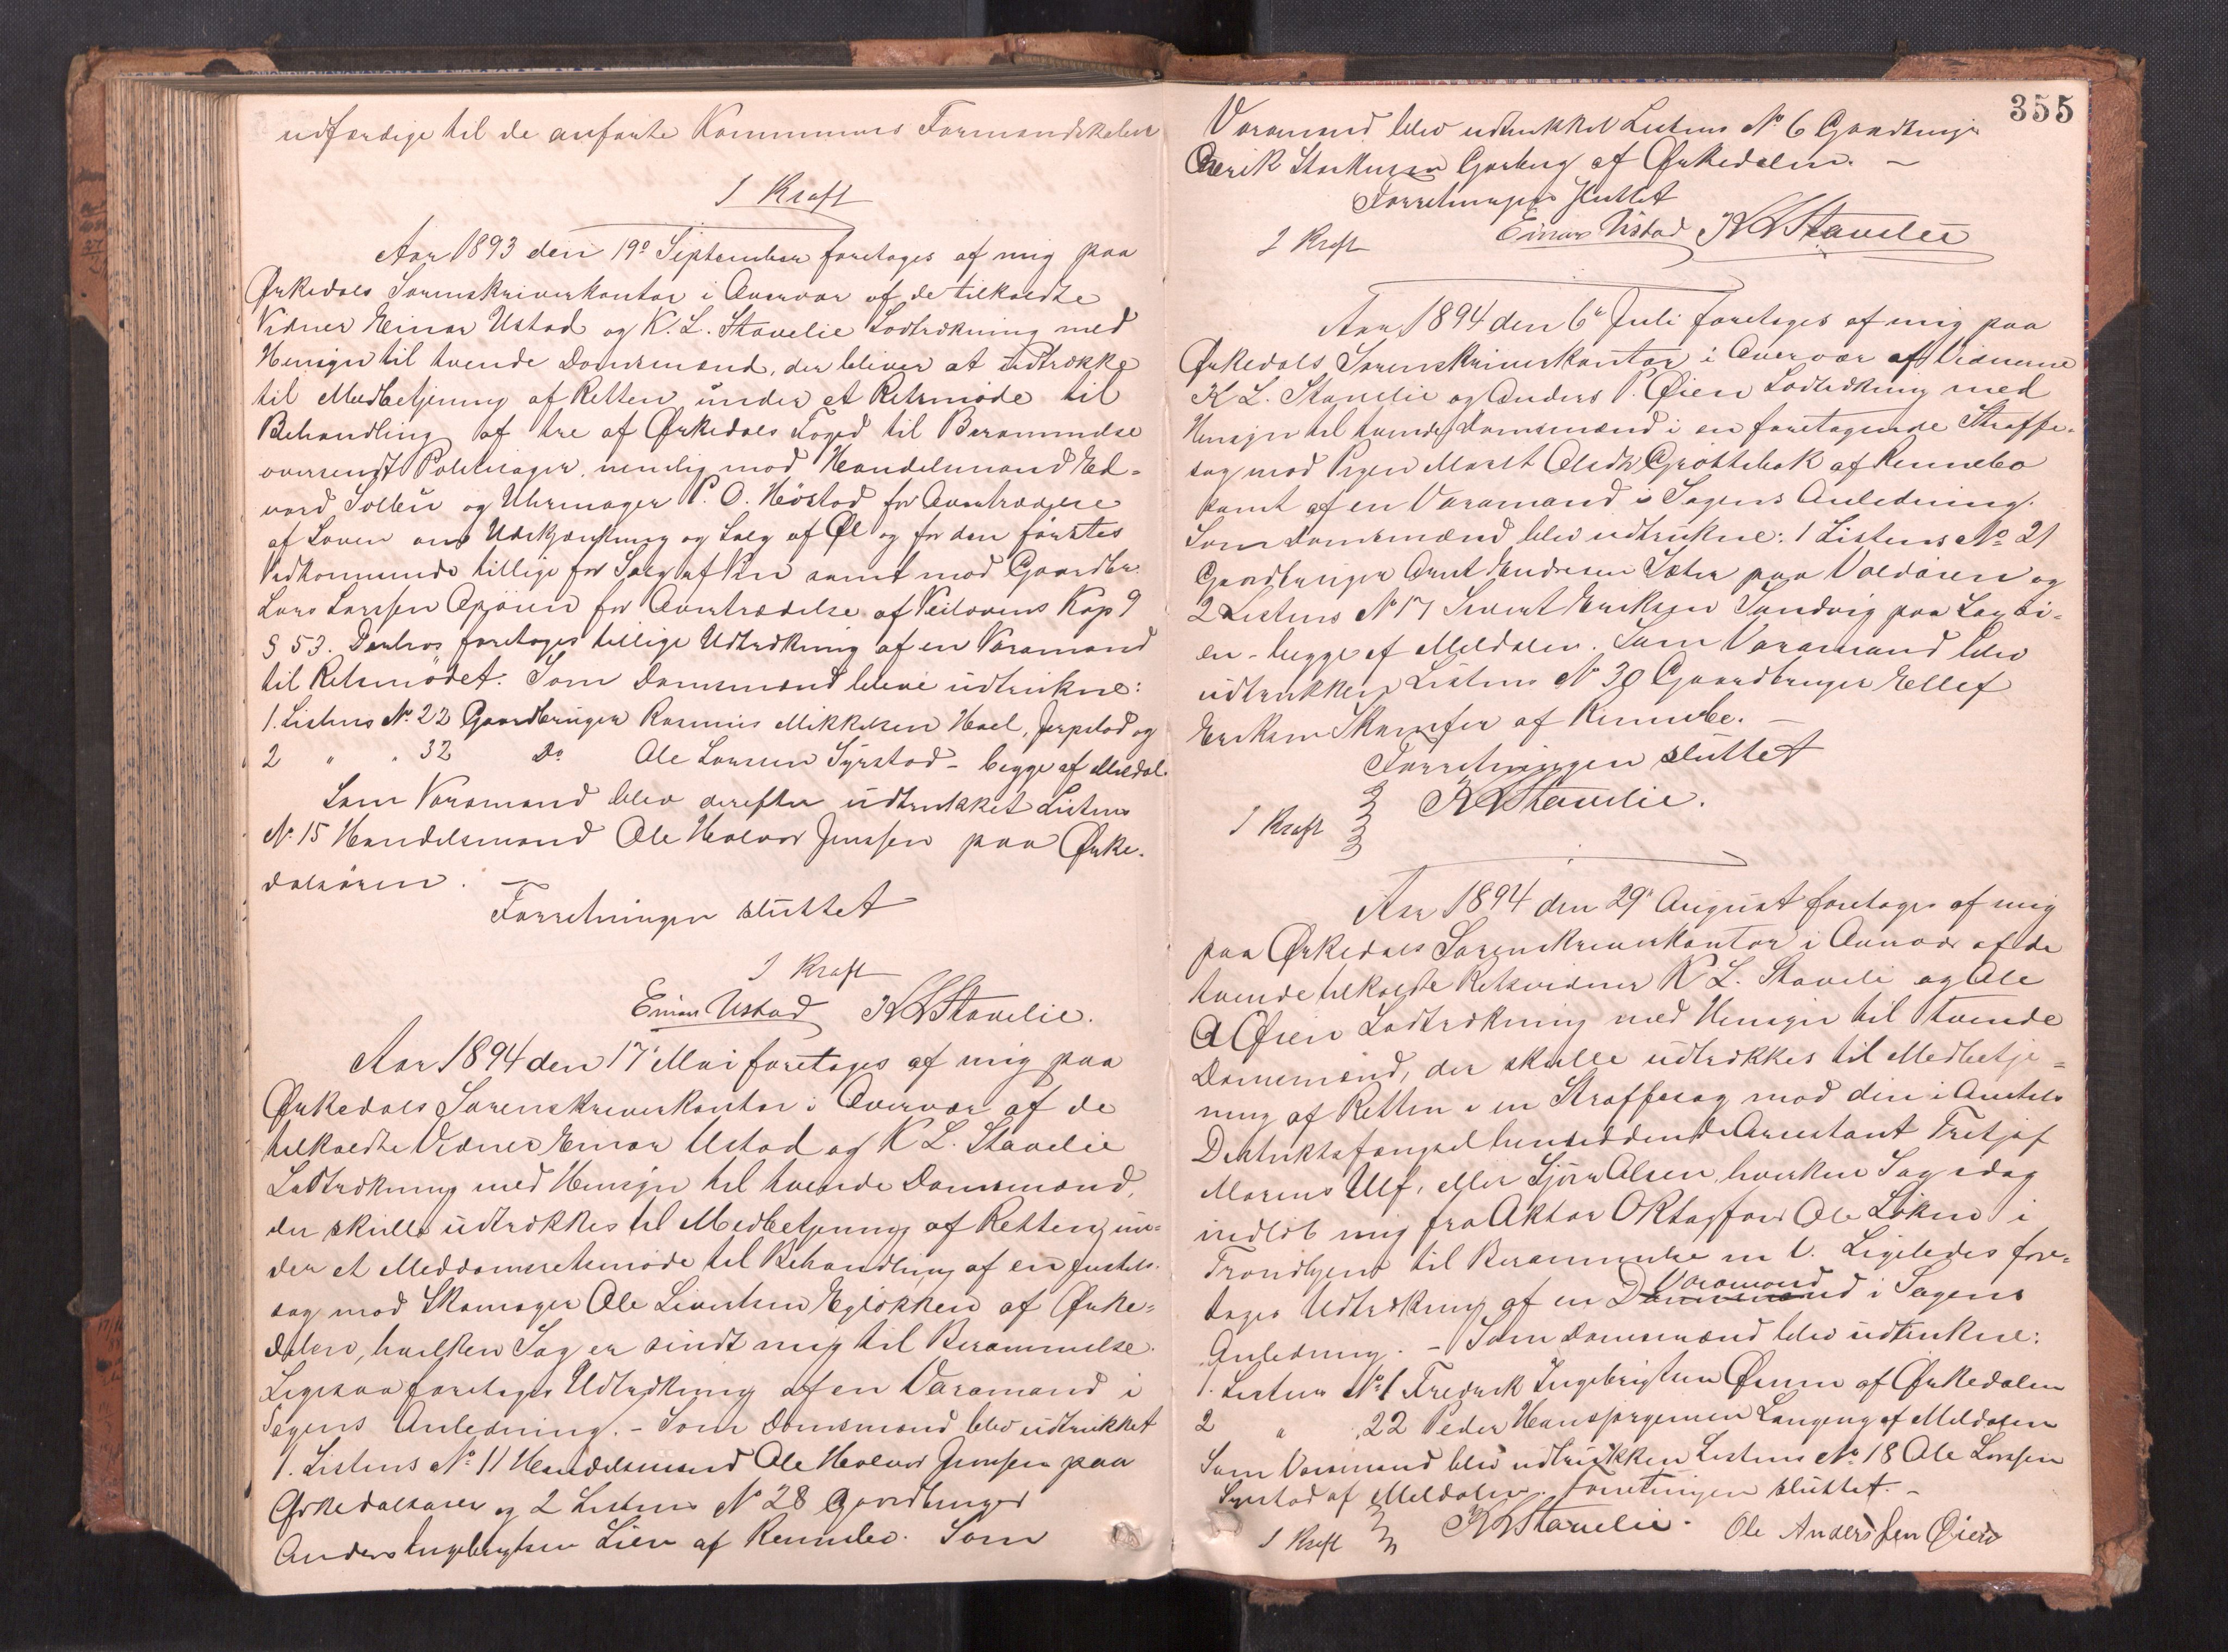 udfærdige til de anførte Kommuners Formandskaber
J Kraft
Aar 1893 den 19de September foretages af mig paa
Ørkedals Sorenskriverkontor i Overvær af de tilkaldte
Vidner Einar Ustad og K. L. Stavelie Lodtrækning med
Hensyn til tvende Domsmænd, der bliver at udtrække
til Medbetjening af Retten under et Retsmøde til
Behandling af tre af Ørkedals Foged til Berammelse
oversendt Politisager, nemlig mod Handelsmand Ed-
vard Solbu og Uhrmager P. O. Høstad for Overtrædelse
af Loven om Udskjænkning og Salg af Øl og for den førstes
Vedkommende tillige for Salg af Vin samt mod Gaardbr.
Lars Larssen for Overtrædelse af Veilovens Kap 9
§ 53. Derhos foretages tillige Udtrækning af en Varamand
til Retsmødet. Som Domsmænd bleve udtrukne:
1. Listens No. 22 Gaardbruger Rasmus Mikkelsen Hoel, Jerpstad og
2 " " 32 Do Ole Larsen Syrstad - begge af Meldal.
Som Varamand blev derefter udtrukket Listens
No. 15 Handelsmand Ole Halvor Jenssen paa Ørke-
dalsøren.
Forretningen sluttet
J Kraft
Einar Ustad K L Stavelie.
Aar 1894 den 17de Mai foretages af mig paa
Ørkedals Sorenskriverkontor i Overvær af de
tilkaldte Vidner Einar Ustad og K L. Stavelie
Lodtrækning med Hensyn til tvende Domsmænd,
der skulle udtrækkes til Medbetjening af Retten un-
der et Meddomsretsmøde til Behandling af en Justits-
sag mod Skomager Ole Sivertsen Egløkken af Ørke-
dalen, hvilken Sag er sendt mig til Berammelse.
Ligesaa foretages Udtrækning af en Varamand i
Sagens Anledning. - Som Domsmænd blev udtrukket
1. Listens No 11 Handelsmand Ole Halvor Jenssen paa
Ørkedalsøren og 2 Listens No 28 Gaardbruger
Anders Ingebrigtsen Lien af Rennebo. Som
355
Varamand blev udtrukket Listens No 6 Gaardbruger
Erik Garberg af Ørkedalen. -
Forretningen sluttet
J Kraft Einar Ustad K L Stavelie
Aar 1894 den 6te Juli foretages af mig paa
Ørkedals Sorenskriverkontor i Overvær af Vidnerne
K L. Stavelie og Anders P. Øien Lodtrækning med
Hensyn til tvende Domsmænd i en foretagende Straffe-
sag mod Pigen Marit Olsdr Grøttebak af Rennebo
samt af en Varamand i Sagens Anledning.
Som Domsmænd blev udtrukne: 1 Listens No 21
Gaardbruger Arnt Endresen paa Voldøien og
2 Listens No 17 Sivert Eriksen Sundvig paa Laxøi-
en - begge af Meldalen. Som Varamand blev
udtrukken Listens No 30 Gaardbruger Ellef
Eriksen Skamfer af Rennebo. -
Forretningen sluttet
J Kraft K L Stavelie.
Aar 1894 den 29de August foretages af mig
paa Ørkedals Sorenskriverkontor i Overvær af de
tvende tilkaldte Retsvidner K L. Staveli og Ole
A Øien Lodtrækning med Hensyn til tvende
Domsmænd, der skulle udtrækkes til Medbetje-
ning af Retten i en Straffesag mod den i
Distriktsfængsel hensiddende Arrestant Fritjof
Marius Ulf, eller Sjøn Olsen, hvilken Sag idag
indløb mig fra Aktor OKtsagfører Ole Løken i
Trondhjem til Berammelse m. V. Ligeledes fore-
tages Udtrækning af en Domsmand Varamand i Sagens
Anledning. - Som Domsmænd blev udtrukne:
1. Listens No 1 Fredrik Ingebrigtsen Øium af Ørkedalen
2 " 22 Peder Hansjørgensen Langeng af Meldalen
Som Varamand blev udtrukken Listens No 18 Ole Larssen
Syrstad af Meldalen. Forretningen sluttet. -
J Kraft K L Stavelie. Ole Anderssen Øien